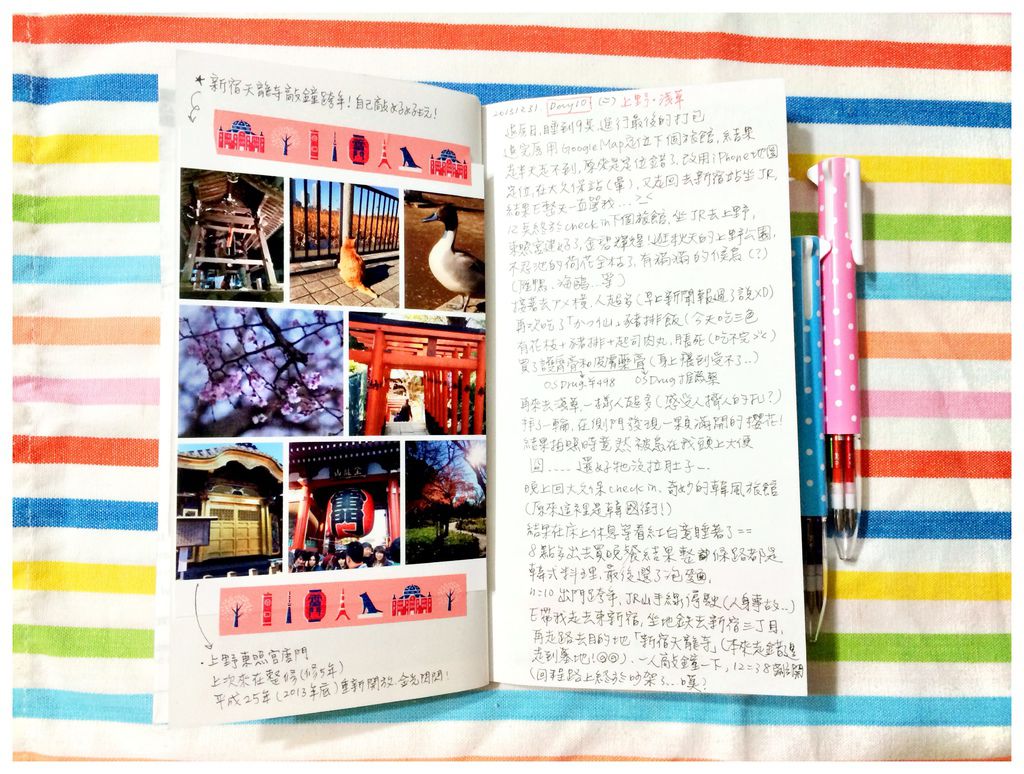 ★新宿天龍寺敲鐘跨年！自己敲好好玩！
金龍山
・上野東照宮唐門
上次來在整修(修5年)
平成25年(2013年底)重新開放,金光閃閃！
20151231. Day10 (二) 上野・淺草
睡到9點,進行最後的打包
退完房用Google Map定位下個旅館,結果
走半天走不到,原來是定位錯了,改用iPhone地圖
定位,在大久保站(暈),又走回去新宿站坐JR,
結果E整又一直罵我...><
12點終於check in下個旅館,坐JR去上野,
東照宮建好了,金碧輝煌！逛秋天的上野公園,
不忍池的荷花全枯了,有滿滿的候鳥(？)
(雁鴨、海鷗...等)
接著去アメ横,人超多(早上新聞報過了說XD)
再次吃了「かつ仙」豬排飯(今天吃三色
有花枝+豬排+起司肉丸,脹死(吃不完><)
買了護脣膏和皮膚藥膏(身上癢到受不了...)
OS Drug ¥498 OS Drug推薦藥
再來去淺草,一樣人超多(感受人擠人的年 ?)
拜了一輪,在側門發現一棵滿開的櫻花！
結果拍照時竟然被鳥在我頭上大便
囧.... 還好牠沒拉肚子...
晚上回大久保check in. 奇妙的韓風旅館
(原來這裡是韓國街！)
結果在床上休息等看紅白竟睡著了==
8點多出去買晚餐結果整條路都是
韓式料理,最後選了泡麵,
11=10出門跨年,JR山手線停駛(人身事故...)
E帶我走去東新宿,坐地鐵去新宿三丁目,
再走路去目的地「新宿天龍寺」(本來走錯還
走到墓地！@@).一人敲鐘一下,12=38
(回程路上終於吵架了...嘆？